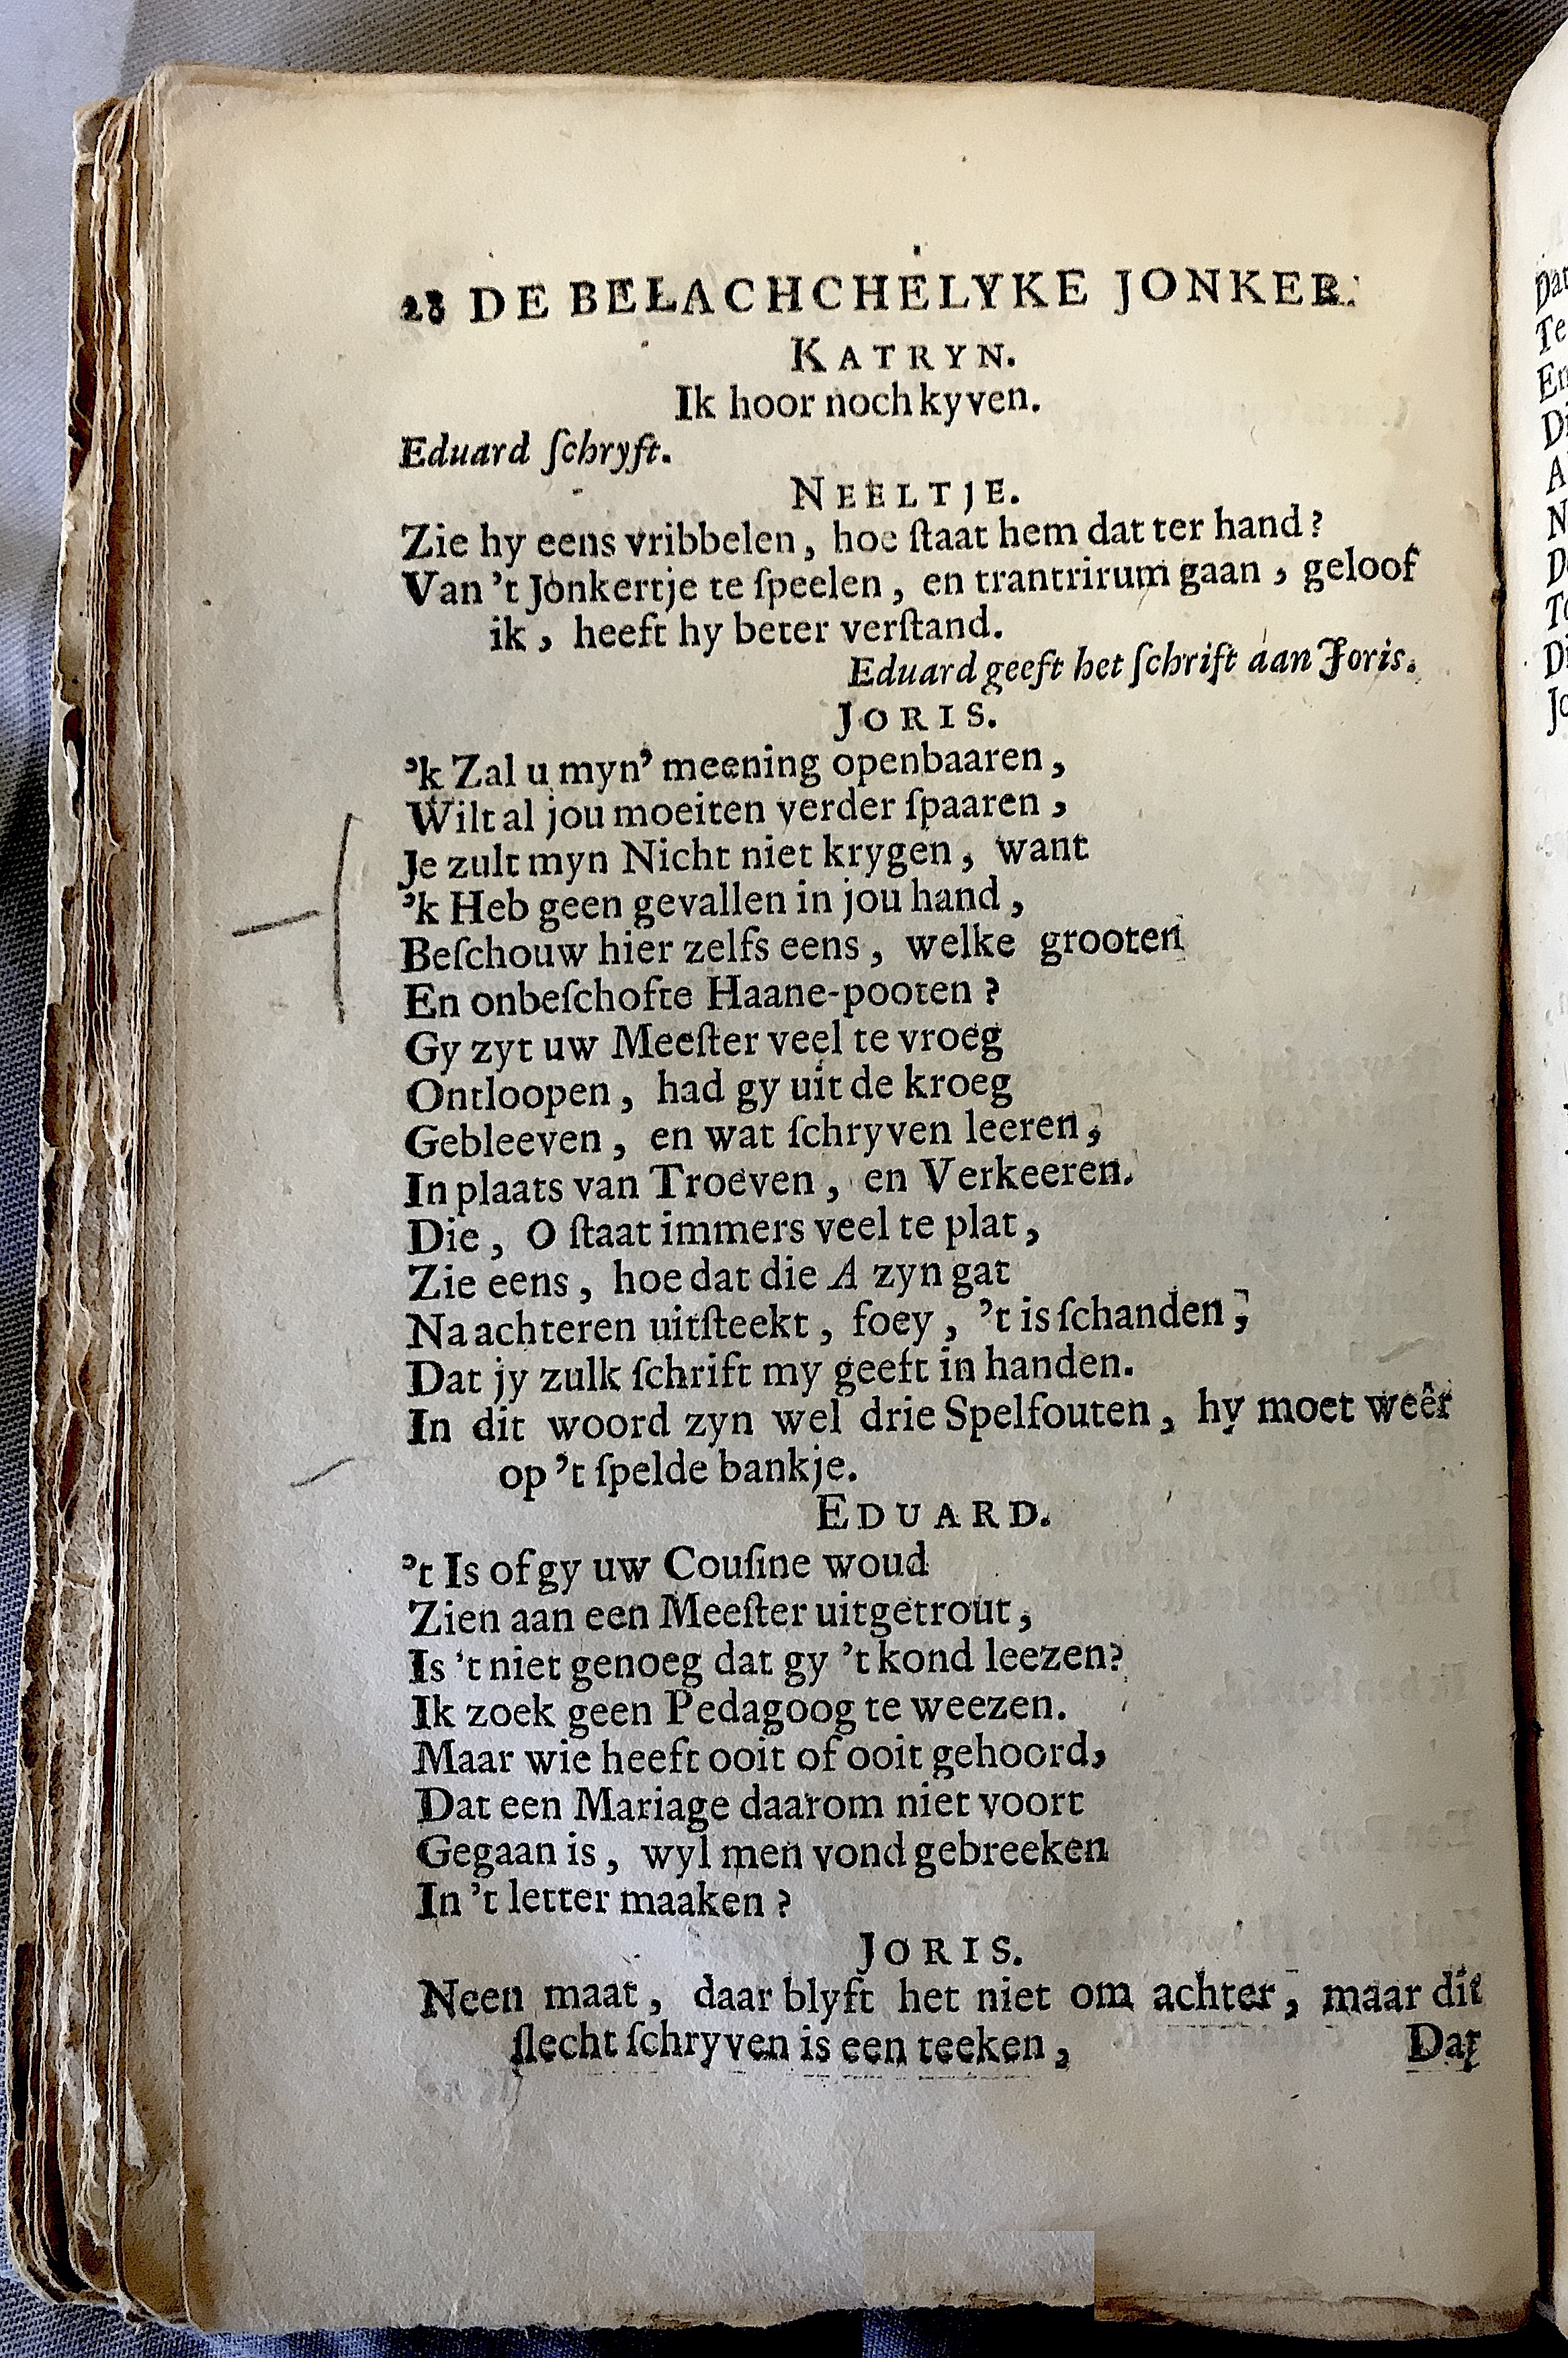 28 DE BELACHCHELYKE JONKER.
KATRYN.
Ik hoor noch kyven.
Eduard ſchryft.
NEELTJE.
Zie hy eens vribbelen, hoe ſtaat hem dat ter hand?
Van 't Jonkertje te ſpeelen, en trantrirum gaan, geloof
ik, heeft hy beter verſtand.
Eduard geeft het ſchrift aan Joris.
JORIS.
'k Zal u myn' meening openbaaren,
Wilt al jou moeiten verder ſpaaren,
Je zult myn Nicht niet krygen, want
'k Heb geen gevallen in jou hand,
Beſchouw hier zelfs eens, welke grooten
En onbeſchofte Haane-pooten?
Gy zyt uw Meeſter veel te vroeg
Ontloopen, had gy uit de kroeg
Gebleeven, en wat ſchryven leeren,
In plaats van Troeven, en Verkeeren.
Die, O ſtaat immers veel te plat,
Zie eens, hoe dat die A zyn gat
Na achteren uitſteekt, foey, 't is ſchanden,
Dat jy zulk ſchrift my geeft in handen.
In dit woord zyn wel drie Spelfouten, hy moet weêr
op 't ſpelde bankje.
EDUARD.
't Is of gy uw Couſine woud
Zien aan een Meeſter uitgetrout,
Is 't niet genoeg dat gy 't kond leezen?
Ik zoek geen Pedagoog te weezen.
Maar wie heeft ooit of ooit gehoord,
Dat een Mariage daarom niet voort
Gegaan is, wyl men vond gebreeken
In 't letter maaken?
JORIS.
Neen maat, daar blyft het niet om achter, maar dit
ſlecht ſchryven is een teeken,
Dat